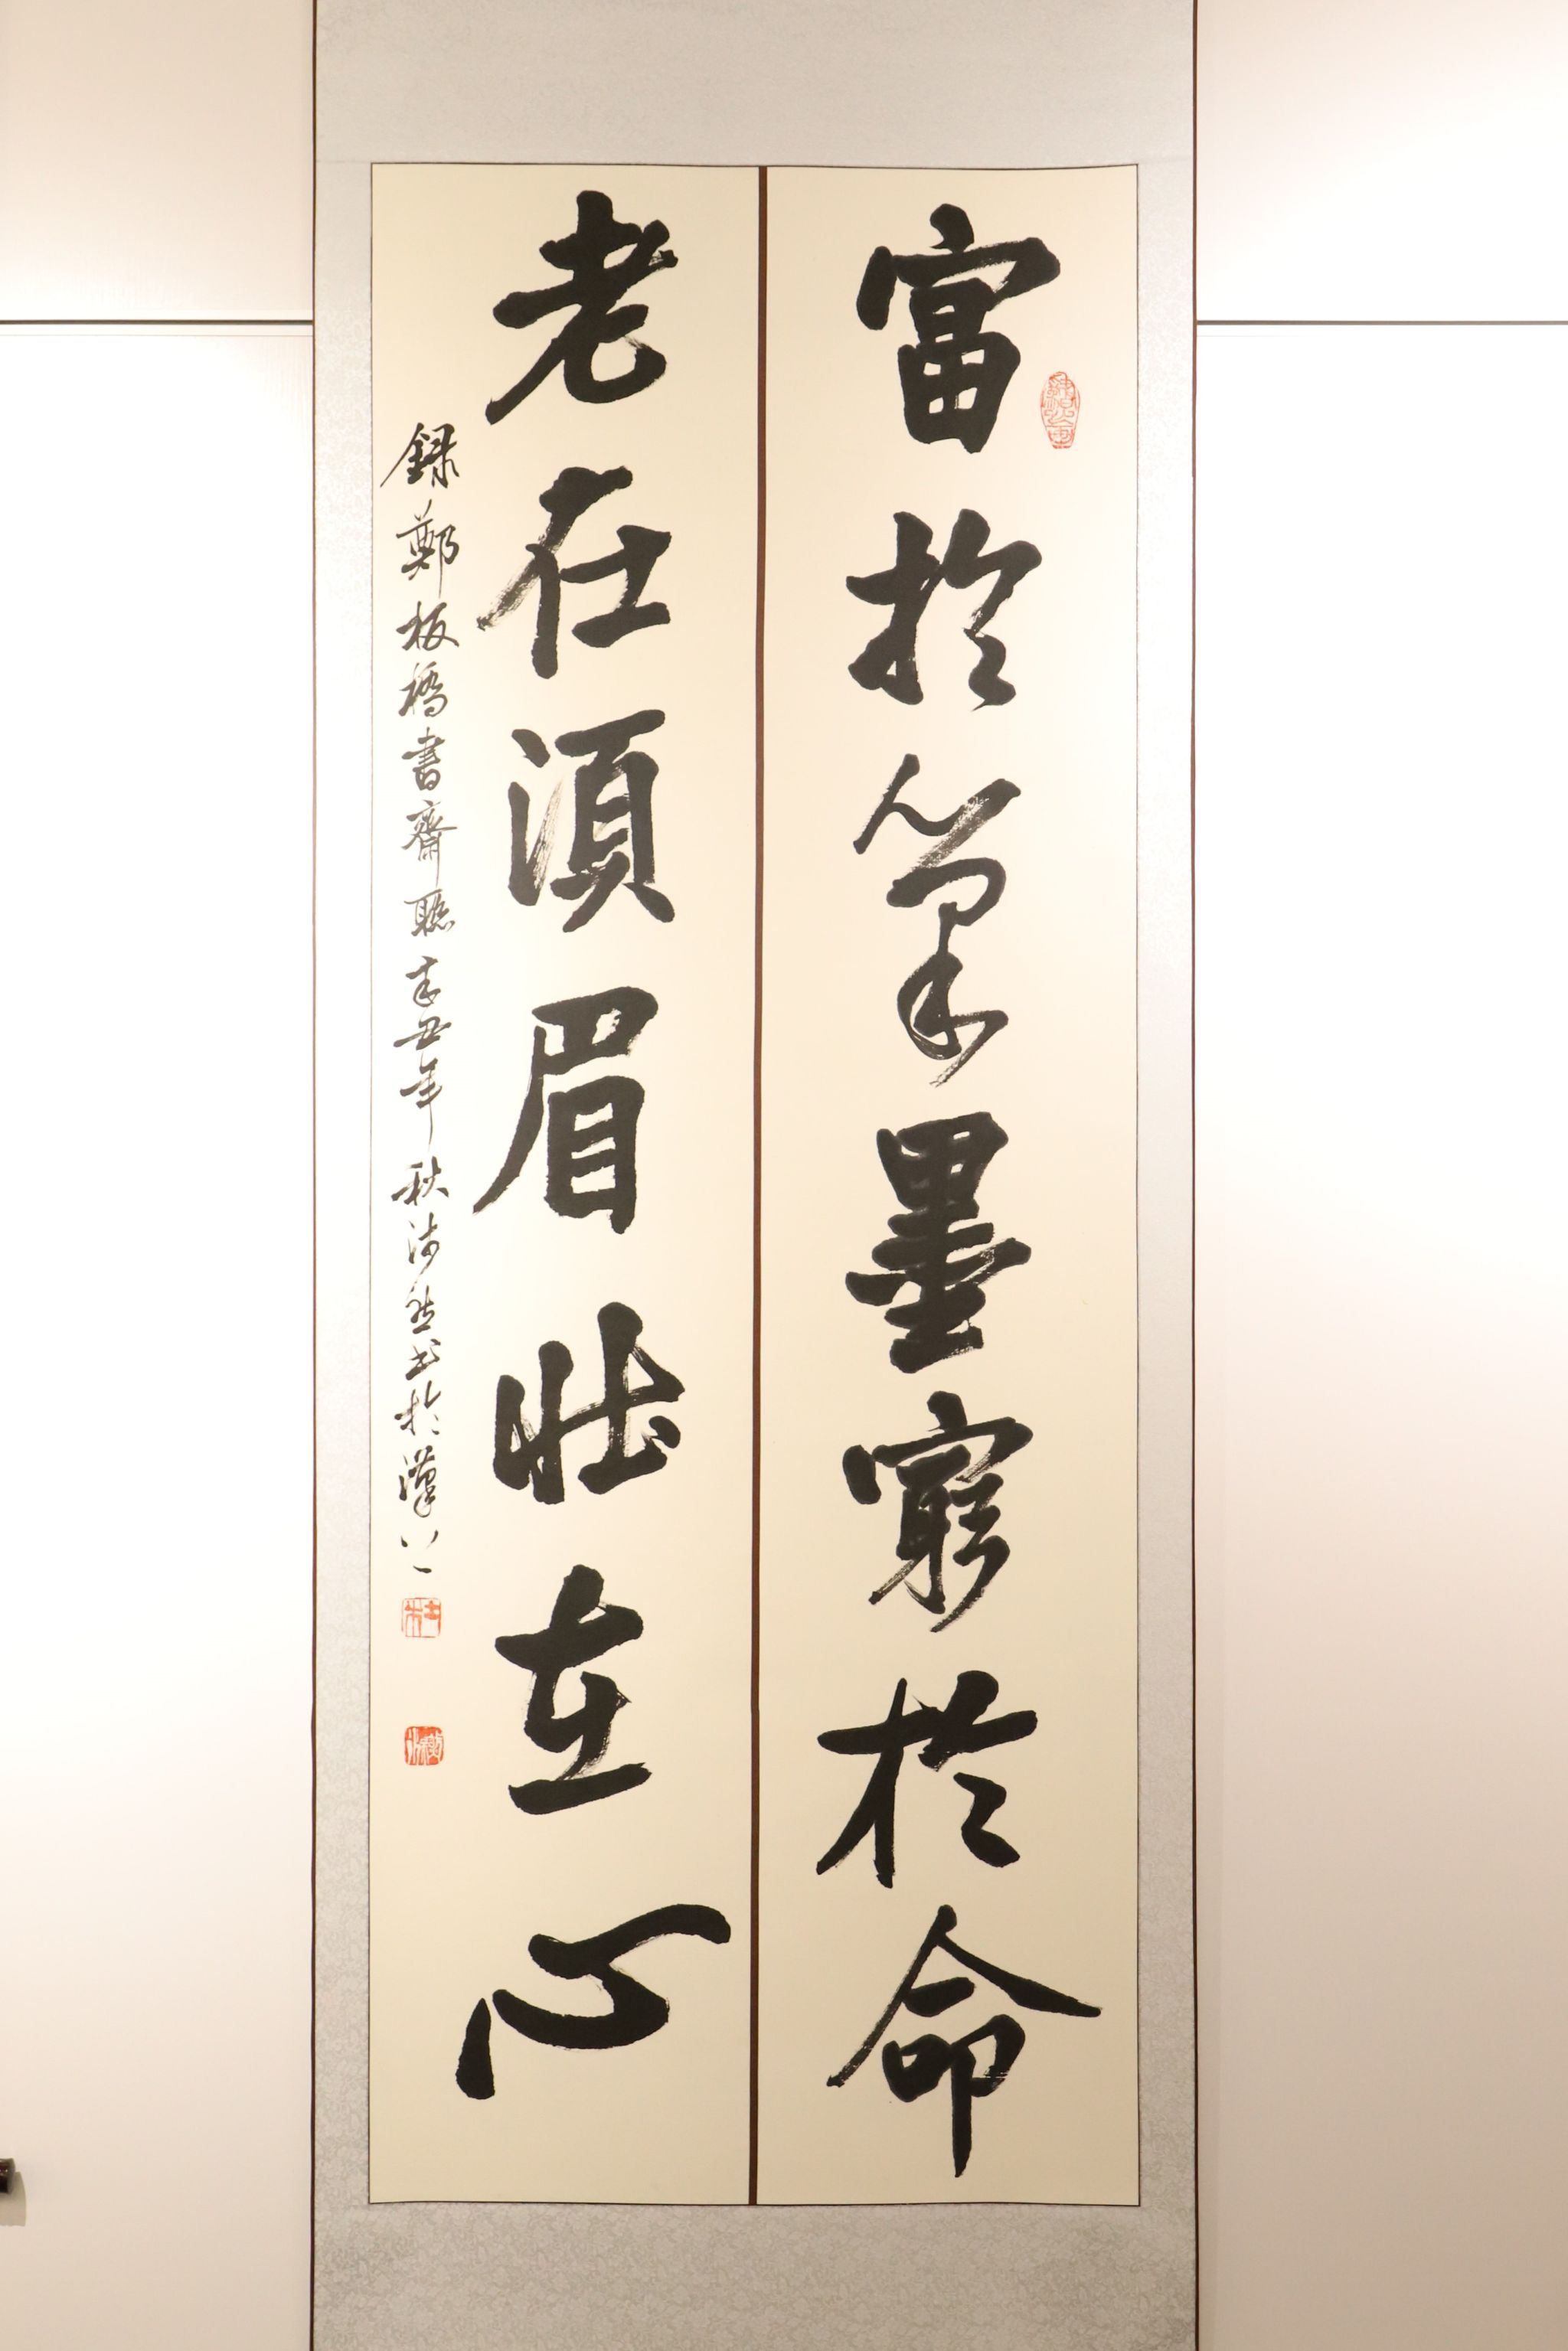 富於筆墨窮於命
老在須眉壯在心
録鄭板橋書齋聯辛丑年秋沛然書於漢上